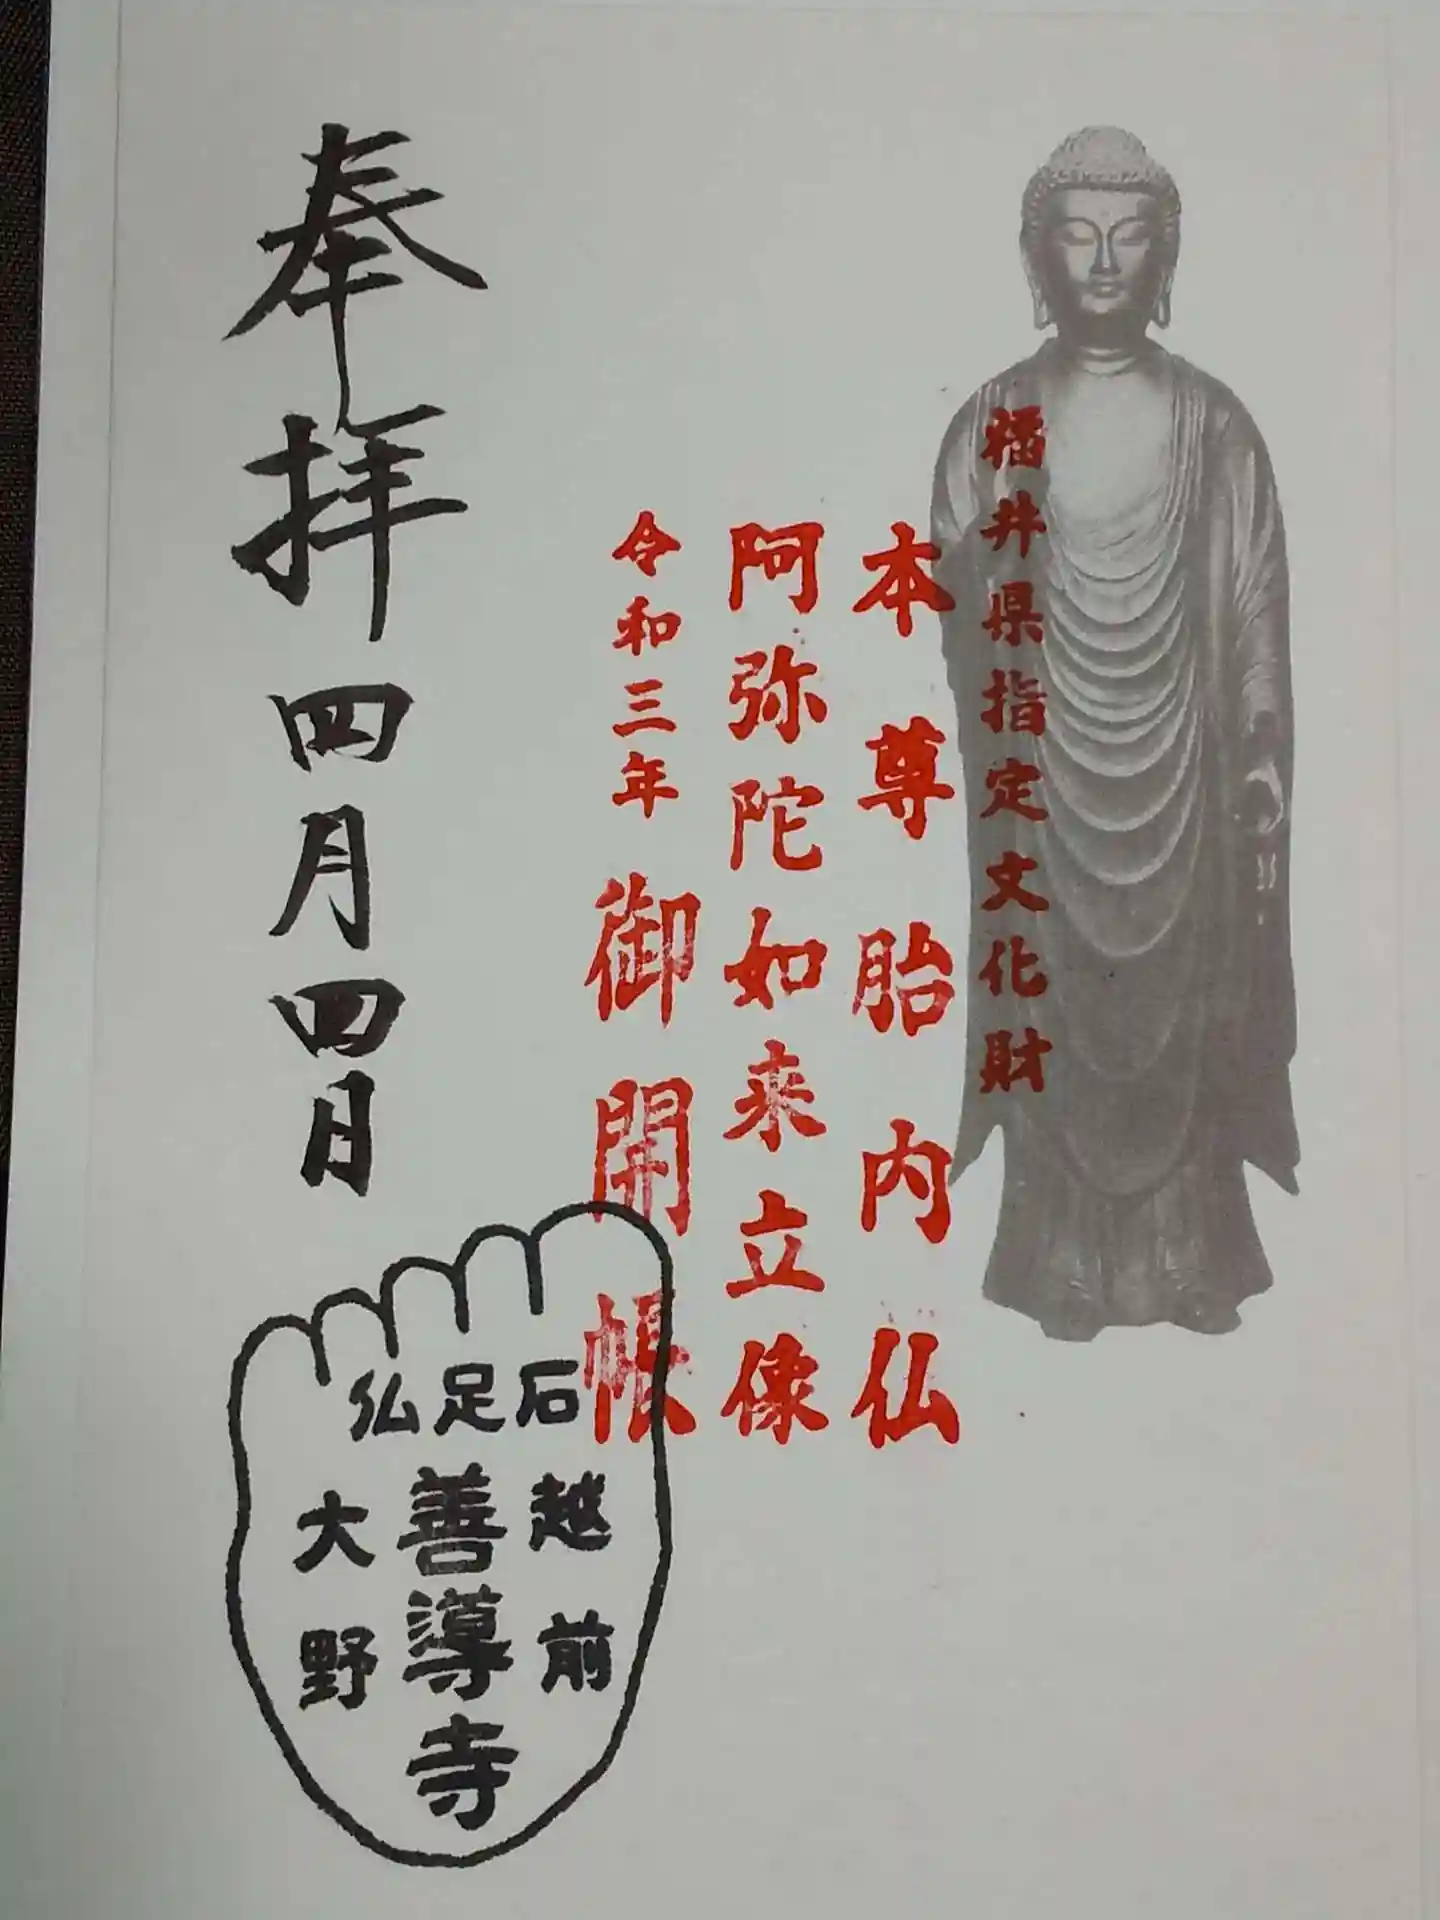 福井県指定文化財
本尊胎内仏
阿弥陀如来立像
令和三年 御開帳
奉拝 四月四日
石足仏
越前
善導寺
大野